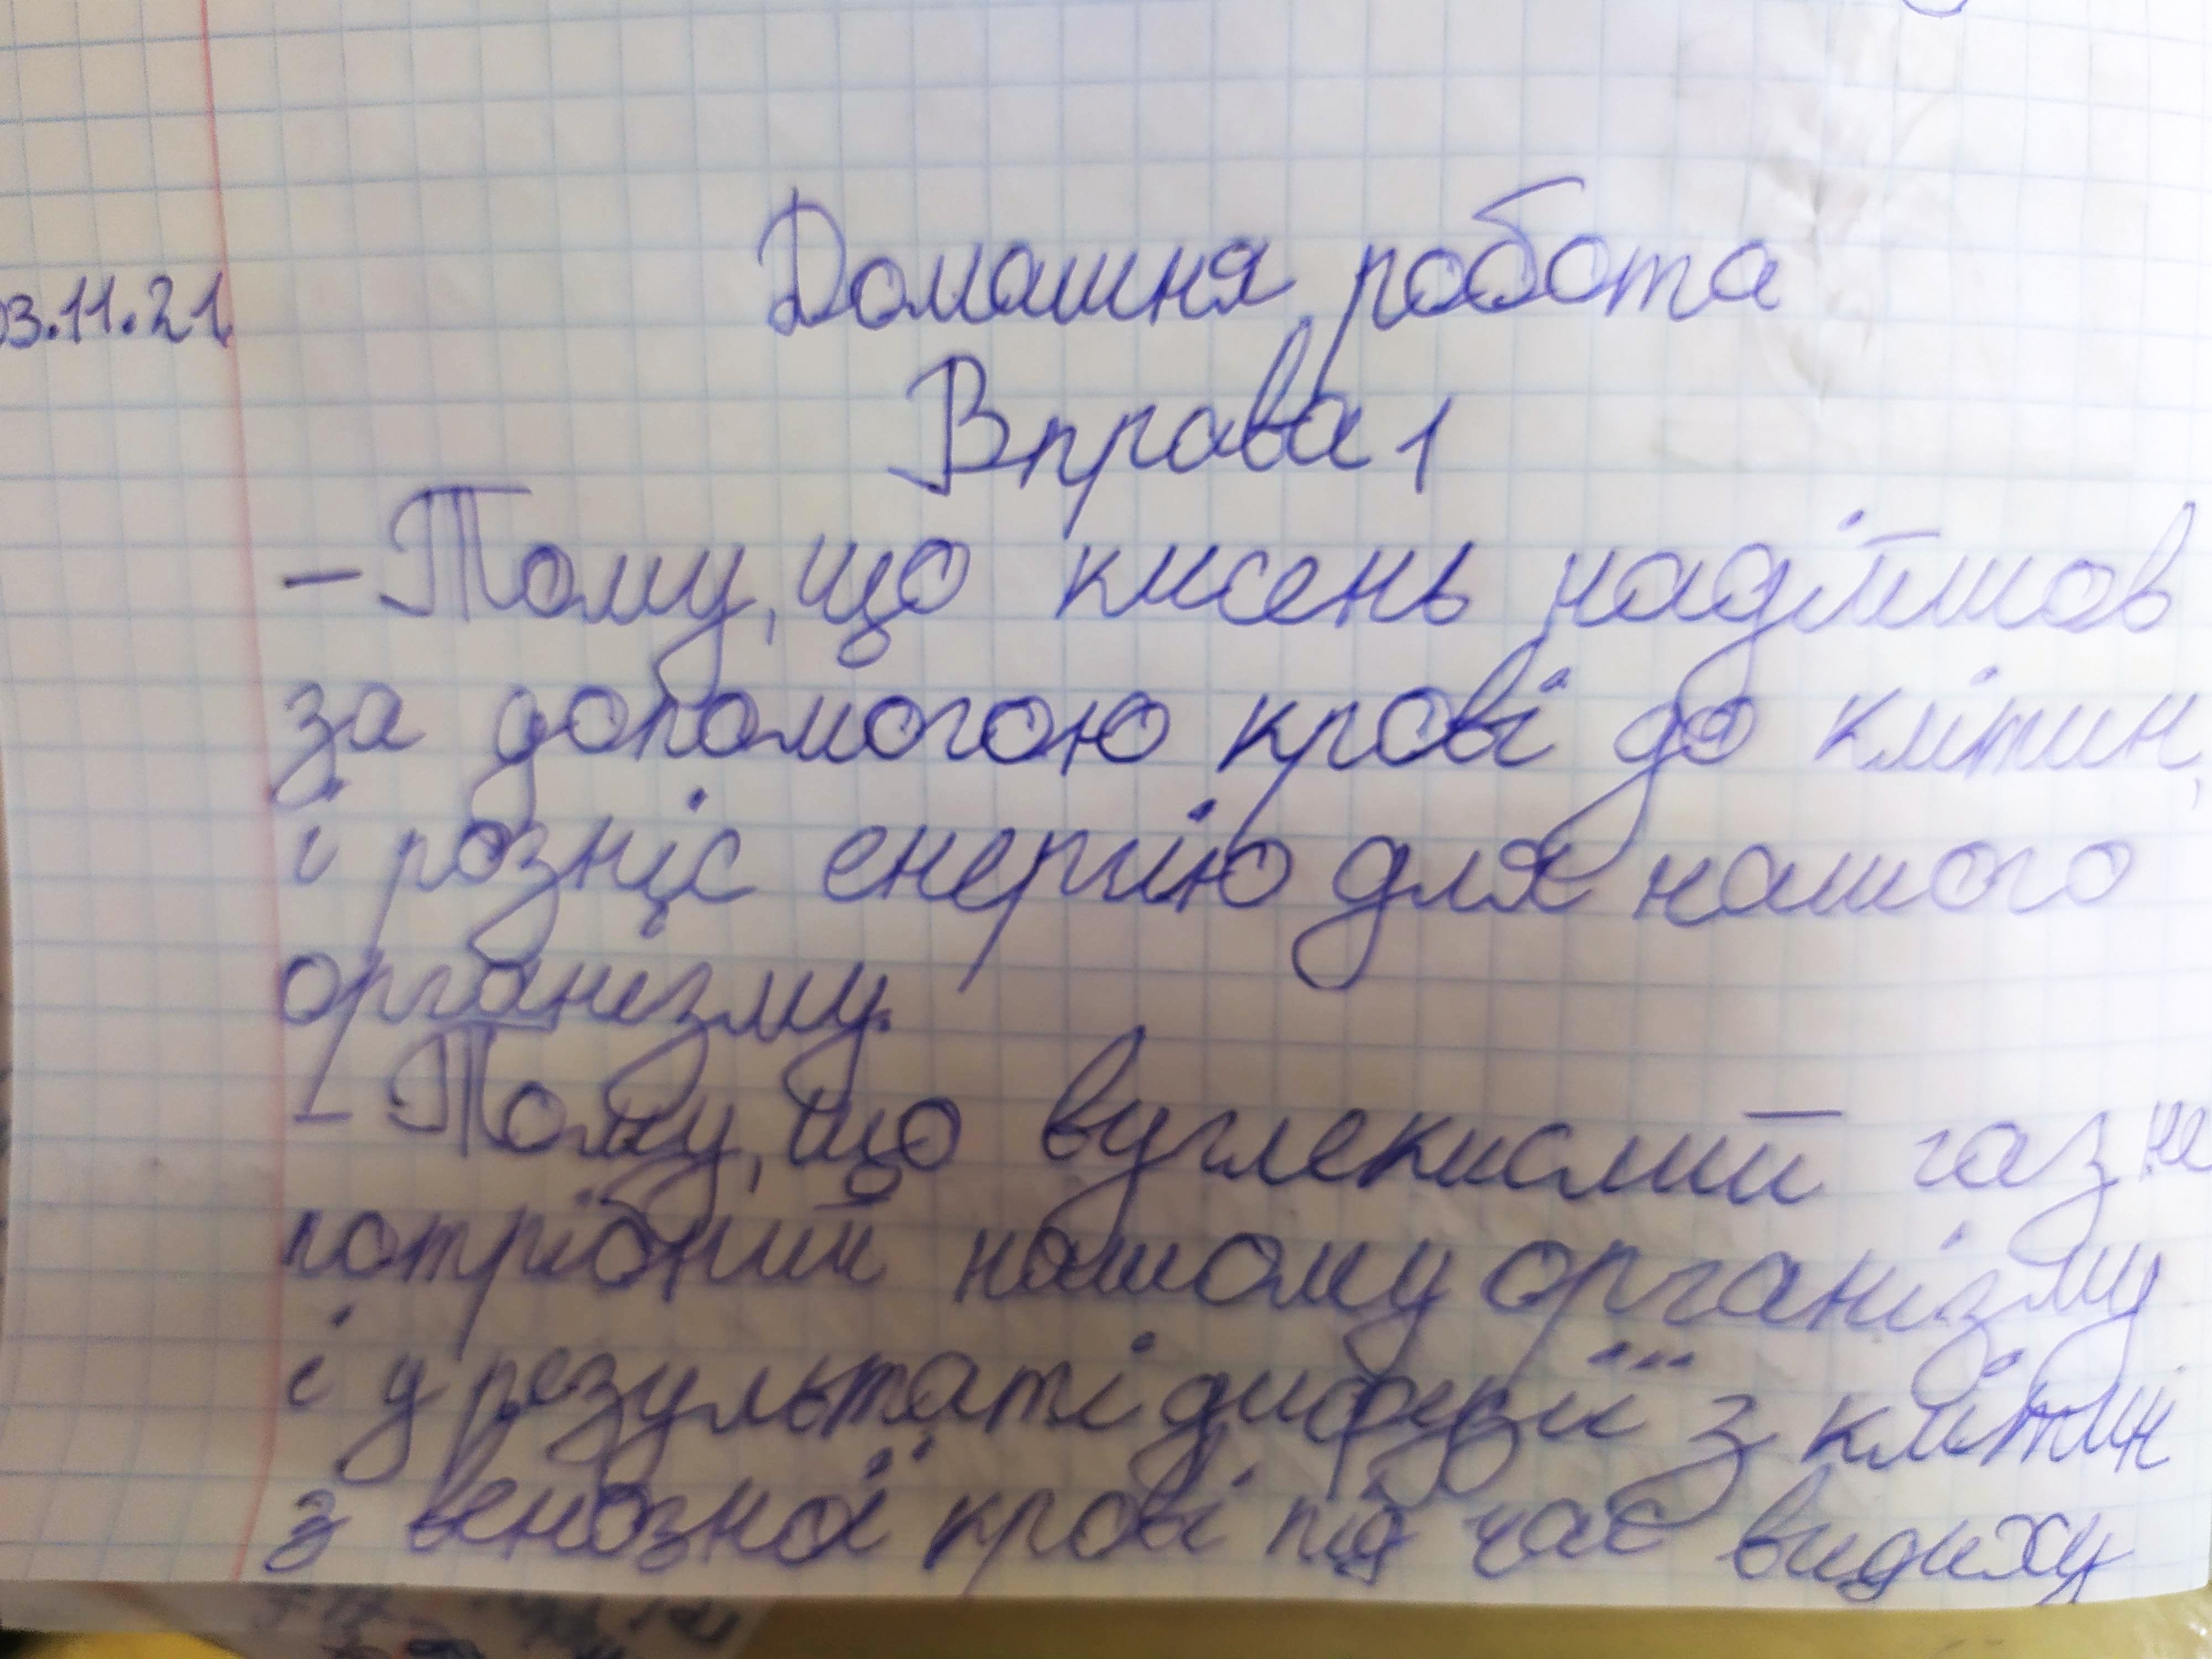 03.11.21
Домашня робота
Вправа 1
– Тому, що кисень надійшов
за допомогою крові до клітин,
і розніс енергію для нашого
організму.
– Тому, що вуглекислий газ не
потрібний нашому організму
і у результаті дифузії з клітин
з венозної крові під час видиху